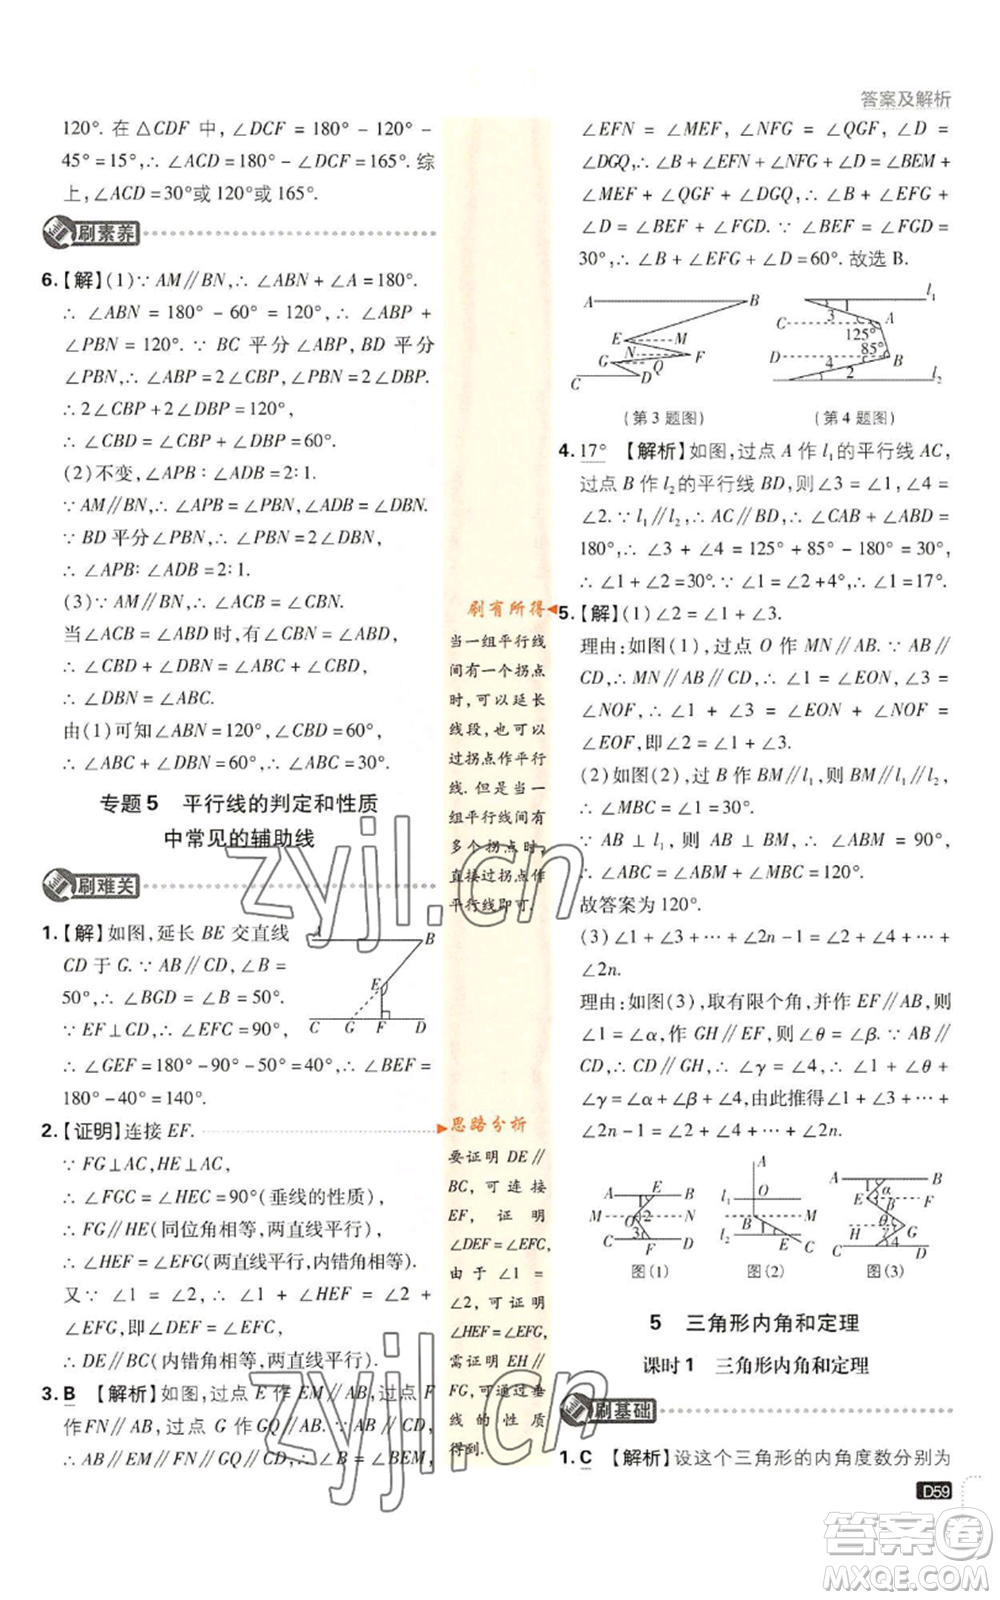 答案及解析
120°. 在 △CDF 中, ∠DCF = 180° - 120° -
45° = 15°,∴ ∠ACD = 180° - ∠DCF = 165°. 综
上, ∠ACD = 30°或 120°或 165°.
刷素养
6.【解】(1)∵ AM∥BN,∴ ∠ABN + ∠A = 180°.
∴ ∠ABN = 180° - 60° = 120°,∴ ∠ABP +
∠PBN = 120°. ∵ BC 平分 ∠ABP, BD 平分
∠PBN,∴ ∠ABP = 2∠CBP, ∠PBN = 2∠DBP.
∴ 2∠CBP+2∠DBP = 120°,
∴ ∠CBD = ∠CBP + ∠DBP = 60°.
(2)不变, ∠APB∶∠ADB = 2∶1.
∵ AM∥BN,∴ ∠APB = ∠PBN, ∠ADB = ∠DBN.
∵ BD 平分 ∠PBN,∴ ∠PBN = 2∠DBN,
∴ ∠APB∶∠ADB = 2∶1.
(3)∵ AM∥BN,∴ ∠ACB = ∠CBN.
当∠ACB = ∠ABD 时,有∠CBN = ∠ABD,
∴ ∠CBD + ∠DBN = ∠ABC + ∠CBD,
∴ ∠DBN = ∠ABC.
由(1)可知 ∠ABN = 120°, ∠CBD = 60°,
∴ ∠ABC + ∠DBN = 60°,∴ ∠ABC = 30°.
专题 5 平行线的判定和性质
中常见的辅助线
刷难关
1.【解】如图,延长 BE 交直线
CD 于 G. ∵ AB∥CD, ∠B =
50°,∴ ∠BGD = ∠B = 50°.
∵ EF⊥CD,∴ ∠EFC = 90°,
∴ ∠GEF = 180° - 90° - 50° = 40°,∴ ∠BEF =
180° - 40° = 140°.
A B
E
C G F D
2.【证明】连接 EF.
∵ FG⊥AC, HE⊥AC,
∴ ∠FGC = ∠HEC = 90°(垂线的性质),
∴ FG∥HE(同位角相等,两直线平行),
∴ ∠HEF = ∠EFG(两直线平行,内错角相等).
又∵ ∠1 = ∠2,∴ ∠1 + ∠HEF = ∠2 +
∠EFG,即∠DEF = ∠EFC,
∴ DE∥BC(内错角相等,两直线平行).
3. B 【解析】如图,过点 E 作 EM∥AB,过点 F
作 FN∥AB,过点 G 作 GQ∥AB,∵ AB∥CD,
∴ AB∥EM∥FN∥GQ∥CD,∴ ∠B = ∠BEM,
刷有所得
当一组平行线
间有一个拐点
时,可以延长
线段,也可以
过拐点作平行
线. 但是当一
组平行线间有
多个拐点时,
直接过拐点作
平行线即可.
思路分析
要证明 DE∥
BC,可连接
EF,证明
∠DEF = ∠EFC,
由于∠1 =
∠2,可证明
∠HEF = ∠EFG,
需证明 EH∥
FG,经过垂
线的性质
得到.
∠EFN = ∠MEF, ∠NFG = ∠QGF, ∠D =
∠DGQ,∴ ∠B + ∠EFN + ∠NFG + ∠D = ∠BEM +
∠MEF + ∠QGF + ∠DGQ,∴ ∠B + ∠EFG +
∠D = ∠BEF + ∠FGD. ∵ ∠BEF = ∠FGD =
30°,∴ ∠B + ∠EFG + ∠D = 60°. 故选 B.
A B
E M
N F
G Q
C D
(第 3 题图)
l₁
3
C A
125°
D 85° B
4 2 l₂
(第 4 题图)
4. 17° 【解析】如图,过点 A 作 l₁的平行线 AC,
过点 B 作 l₂的平行线 BD,则∠3 = ∠1, ∠4 =
∠2. ∵ l₁∥l₂,∴ AC∥BD,∴ ∠CAB + ∠ABD =
180°,∴ ∠3 + ∠4 = 125° + 85° - 180° = 30°,
∴ ∠1 + ∠2 = 30°. ∵ ∠1 = ∠2+4°,∴ ∠1 = 17°.
5.【解】(1) ∠2 = ∠1 + ∠3.
理由:如图(1),过点 O 作 MN∥AB. ∵ AB∥
CD,∴ MN∥CD,∴ ∠1 = ∠EON, ∠3 =
∠NOF,∴ ∠1 + ∠3 = ∠EON + ∠NOF =
∠EOF,即∠2 = ∠1 + ∠3.
(2)如图(2),过 B 作 BM∥l₁,则 BM∥l₂,
∴ ∠MBC = ∠1 = 30°.
∵ AB ⊥ l₁,则 AB ⊥ BM,∴ ∠ABM = 90°,
∴ ∠ABC = ∠ABM + ∠MBC = 90° + 30° = 120°.
故答案为 120°.
(3) ∠1 + ∠3 + ⋯ + ∠2n - 1 = ∠2 + ∠4 + ⋯ +
∠2n.
理由:如图(3),取有限个角,并作 EF∥AB,则
∠1 = ∠α,作 GH∥EF,则∠θ = ∠β. ∵ AB∥
CD,∴ CD∥GH,∴ ∠γ = ∠4,∴ ∠1 + ∠θ +
∠γ = ∠α + ∠β + ∠4,由此推得∠1 + ∠3 + ⋯ +
∠2n - 1 = ∠2 + ∠4 + ⋯ + ∠2n.
A E B
1
M O 2 N
3
C F D
图(1)
A
l₁ O
B M
l₂ 1
C
图(2)
A 1 B
E α F
β
H θ G
γ 4
C D
图(3)
5 三角形内角和定理
课时 1 三角形内角和定理
刷基础
1. C 【解析】设这个三角形的内角度数分别为
D59
zyjl.cn
zyjl.cn
答案圈
MXQE.COM